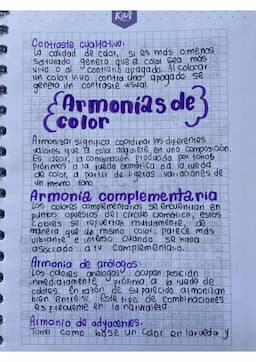 KM
Contraste cualitativo:
la calidad de color, si es más o menos
saturado genera que el color sea más
vivo o al contrario apagado. Al colocar
un color vivo contra uno apagado se
genera un contraste visual.
Armonías de
color
Armonizar significa coordinar los diferentes
valores que el color adquiere en una composición.
Es decir, la combinación producida por tonos
próximos a la rueda cromática o a la rueda
de color, a partir de ligeras variaciones de
un mismo tono
Armonía complementaria
Los colores complementarios se encuentran en
puntos opuestos del círculo cromático, estos
colores se refuerzan mutuamente, de
manera que un mismo color, parece más
vibrante e intenso cuando se halla
asociado a tu complementario.
Armonía de análogos:
Los colores análogos ocupan posición
inmediatamente próximo a la rueda de
colores. En razón de su parecido armonizan
bien entre sí. Este tipo de combinaciones
es frecuente en la naturaleza.
Armonía de adyacentes.
Toma como base un color en la rueda y